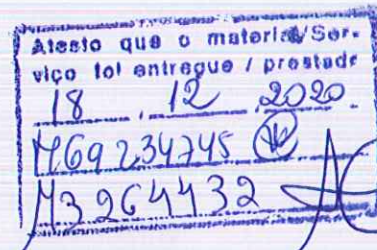 Atesto que o material/Ser-
viço foi entregue / prestado
18 . 12 . 2020.
M69 234745
M3264432